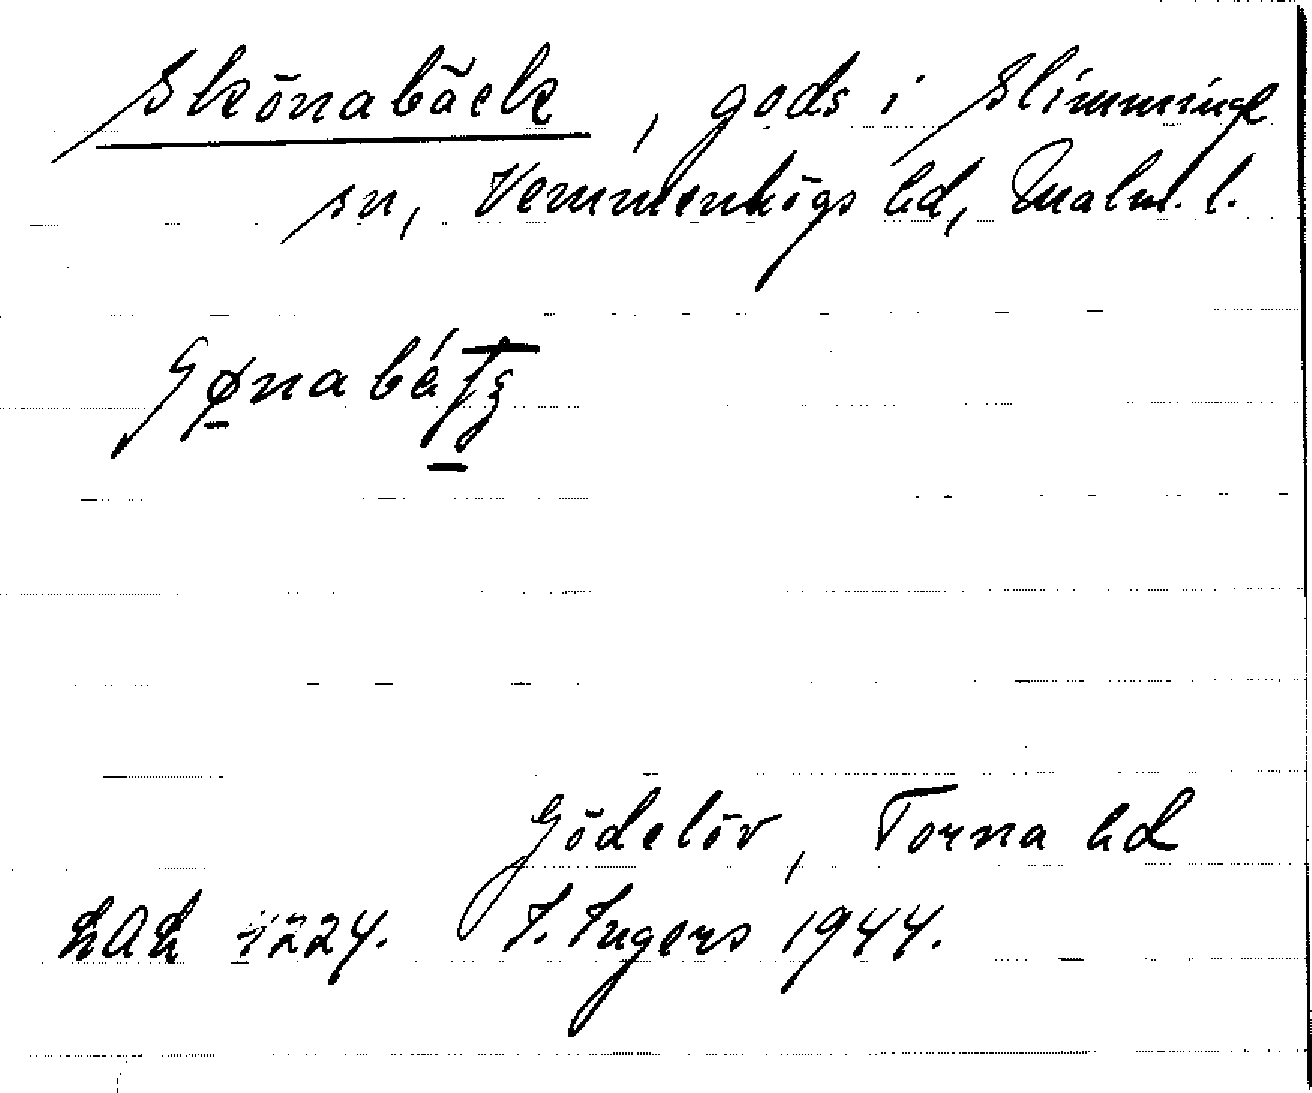 Skönabäck, gods i Slimminge
sn, Vemmenhögs hd, Malm. l.
Gödelöv, Torna hd
LAL 1224. I. Ingers 1944.